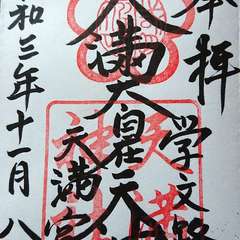 奉拝
学文路
天満大自在天
天満宮
和三年十一月八